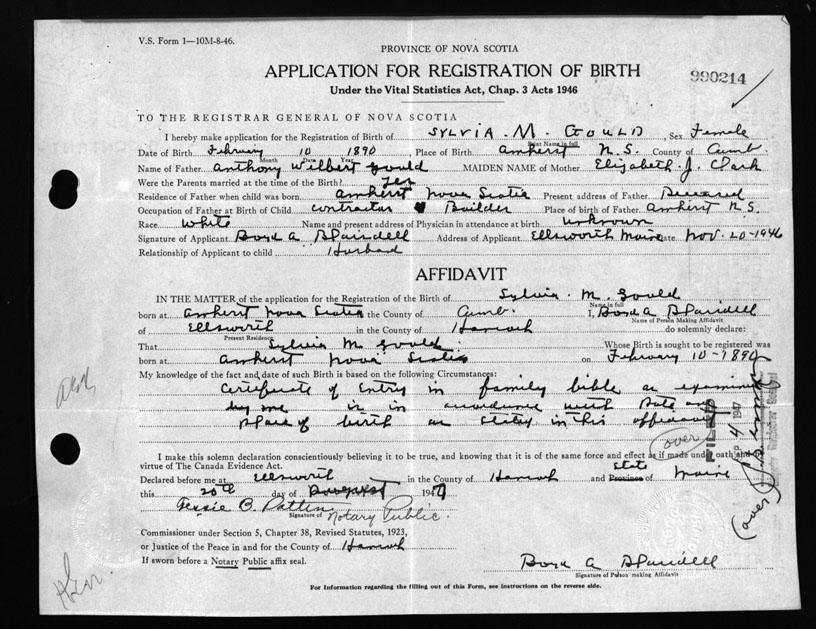 V.S. Form 1—10M-8-46.
PROVINCE OF NOVA SCOTIA
APPLICATION FOR REGISTRATION OF BIRTH
990214
Under the Vital Statistics Act, Chap. 3 Acts 1946
TO THE REGISTRAR GENERAL OF NOVA SCOTIA
I hereby make application for the Registration of Birth of SYLVIA. M. GOULD, Sex Female
Print Name in full
Date of Birth February 10 1890 Place of Birth Amherst N.S. County of Cumb.
Month Date Year
Name of Father Anthony Wilbert Gould MAIDEN NAME of Mother Elizabeth. J. Clark
Were the Parents married at the time of the Birth? Yes
Residence of Father when child was born Amherst Nova Scotia Present address of Father Deceased
Occupation of Father at Birth of Child Contractor Builder Place of birth of Father Amherst N.S.
Race White Name and present address of Physician in attendance at birth unknown
Signature of Applicant Address of Applicant Ellsworth Maine Date Nov. 20-1946
Relationship of Applicant to child Husband
AFFIDAVIT
IN THE MATTER of the application for the Registration of the Birth of Sylvia. M. Gould
Name in full
born at Amherst Nova Scotia the County of Cumb. I,
Name of Person Making Affidavit
of Ellsworth in the County of Hancock do solemnly declare:
Present Residence
That Sylvia M Gould Whose Birth is sought to be registered was
born at Amherst Nova Scotia on February 10-1890
My knowledge of the fact and date of such Birth is based on the following Circumstances:
Certificate of Entry in family bible as examined
by me is in accordance with Date and
Place of birth as stated in this affidavit
(over)
FILED
4 1947
(over)
I make this solemn declaration conscientiously believing it to be true, and knowing that it is of the same force and effect as if made under oath and
virtue of The Canada Evidence Act.
Declared before me at Ellsworth in the County of Hancock and Province of State Maine
this 20th day of 1947
Signature of Notary Public.
Commissioner under Section 5, Chapter 38, Revised Statutes, 1923,
or Justice of the Peace in and for the County of Hancock
If sworn before a Notary Public affix seal.
Signature of Person making Affidavit
For Information regarding the filling out of this Form, see instructions on the reverse side.